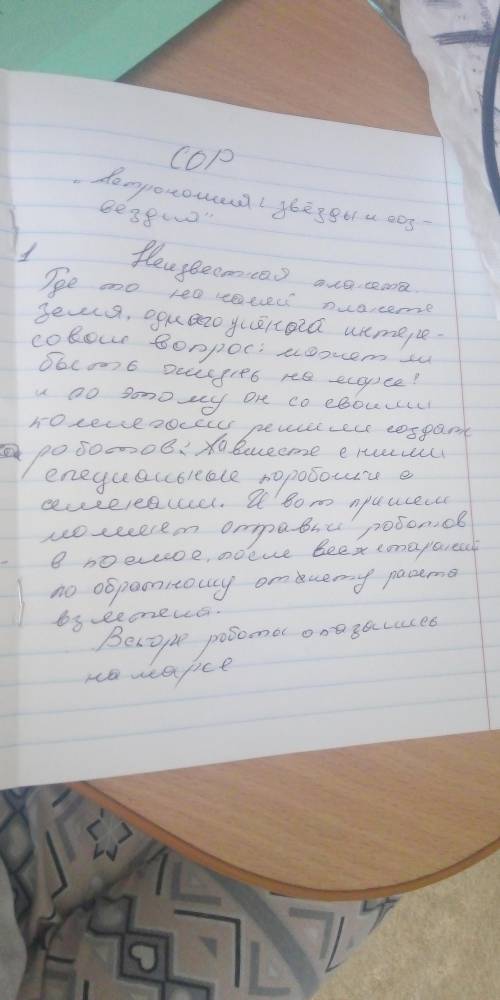 СОР
"Астрономия: звёзды и соз-
вездия"
1 Неизвестная планета
Где то на нашей планете
земля, одного учёного интере-
совал вопрос: может ли
быть жизнь на марсе!
и по этому он со своими
коллегами решили создать
роботов: А вместе с ними
специальные коробочки с
семенами. И вот пришел
момент отправки роботов
в космос, после всех стараний
по обратному отсчету ракета
взлетела.
Вскоре роботы оказались
на марсе